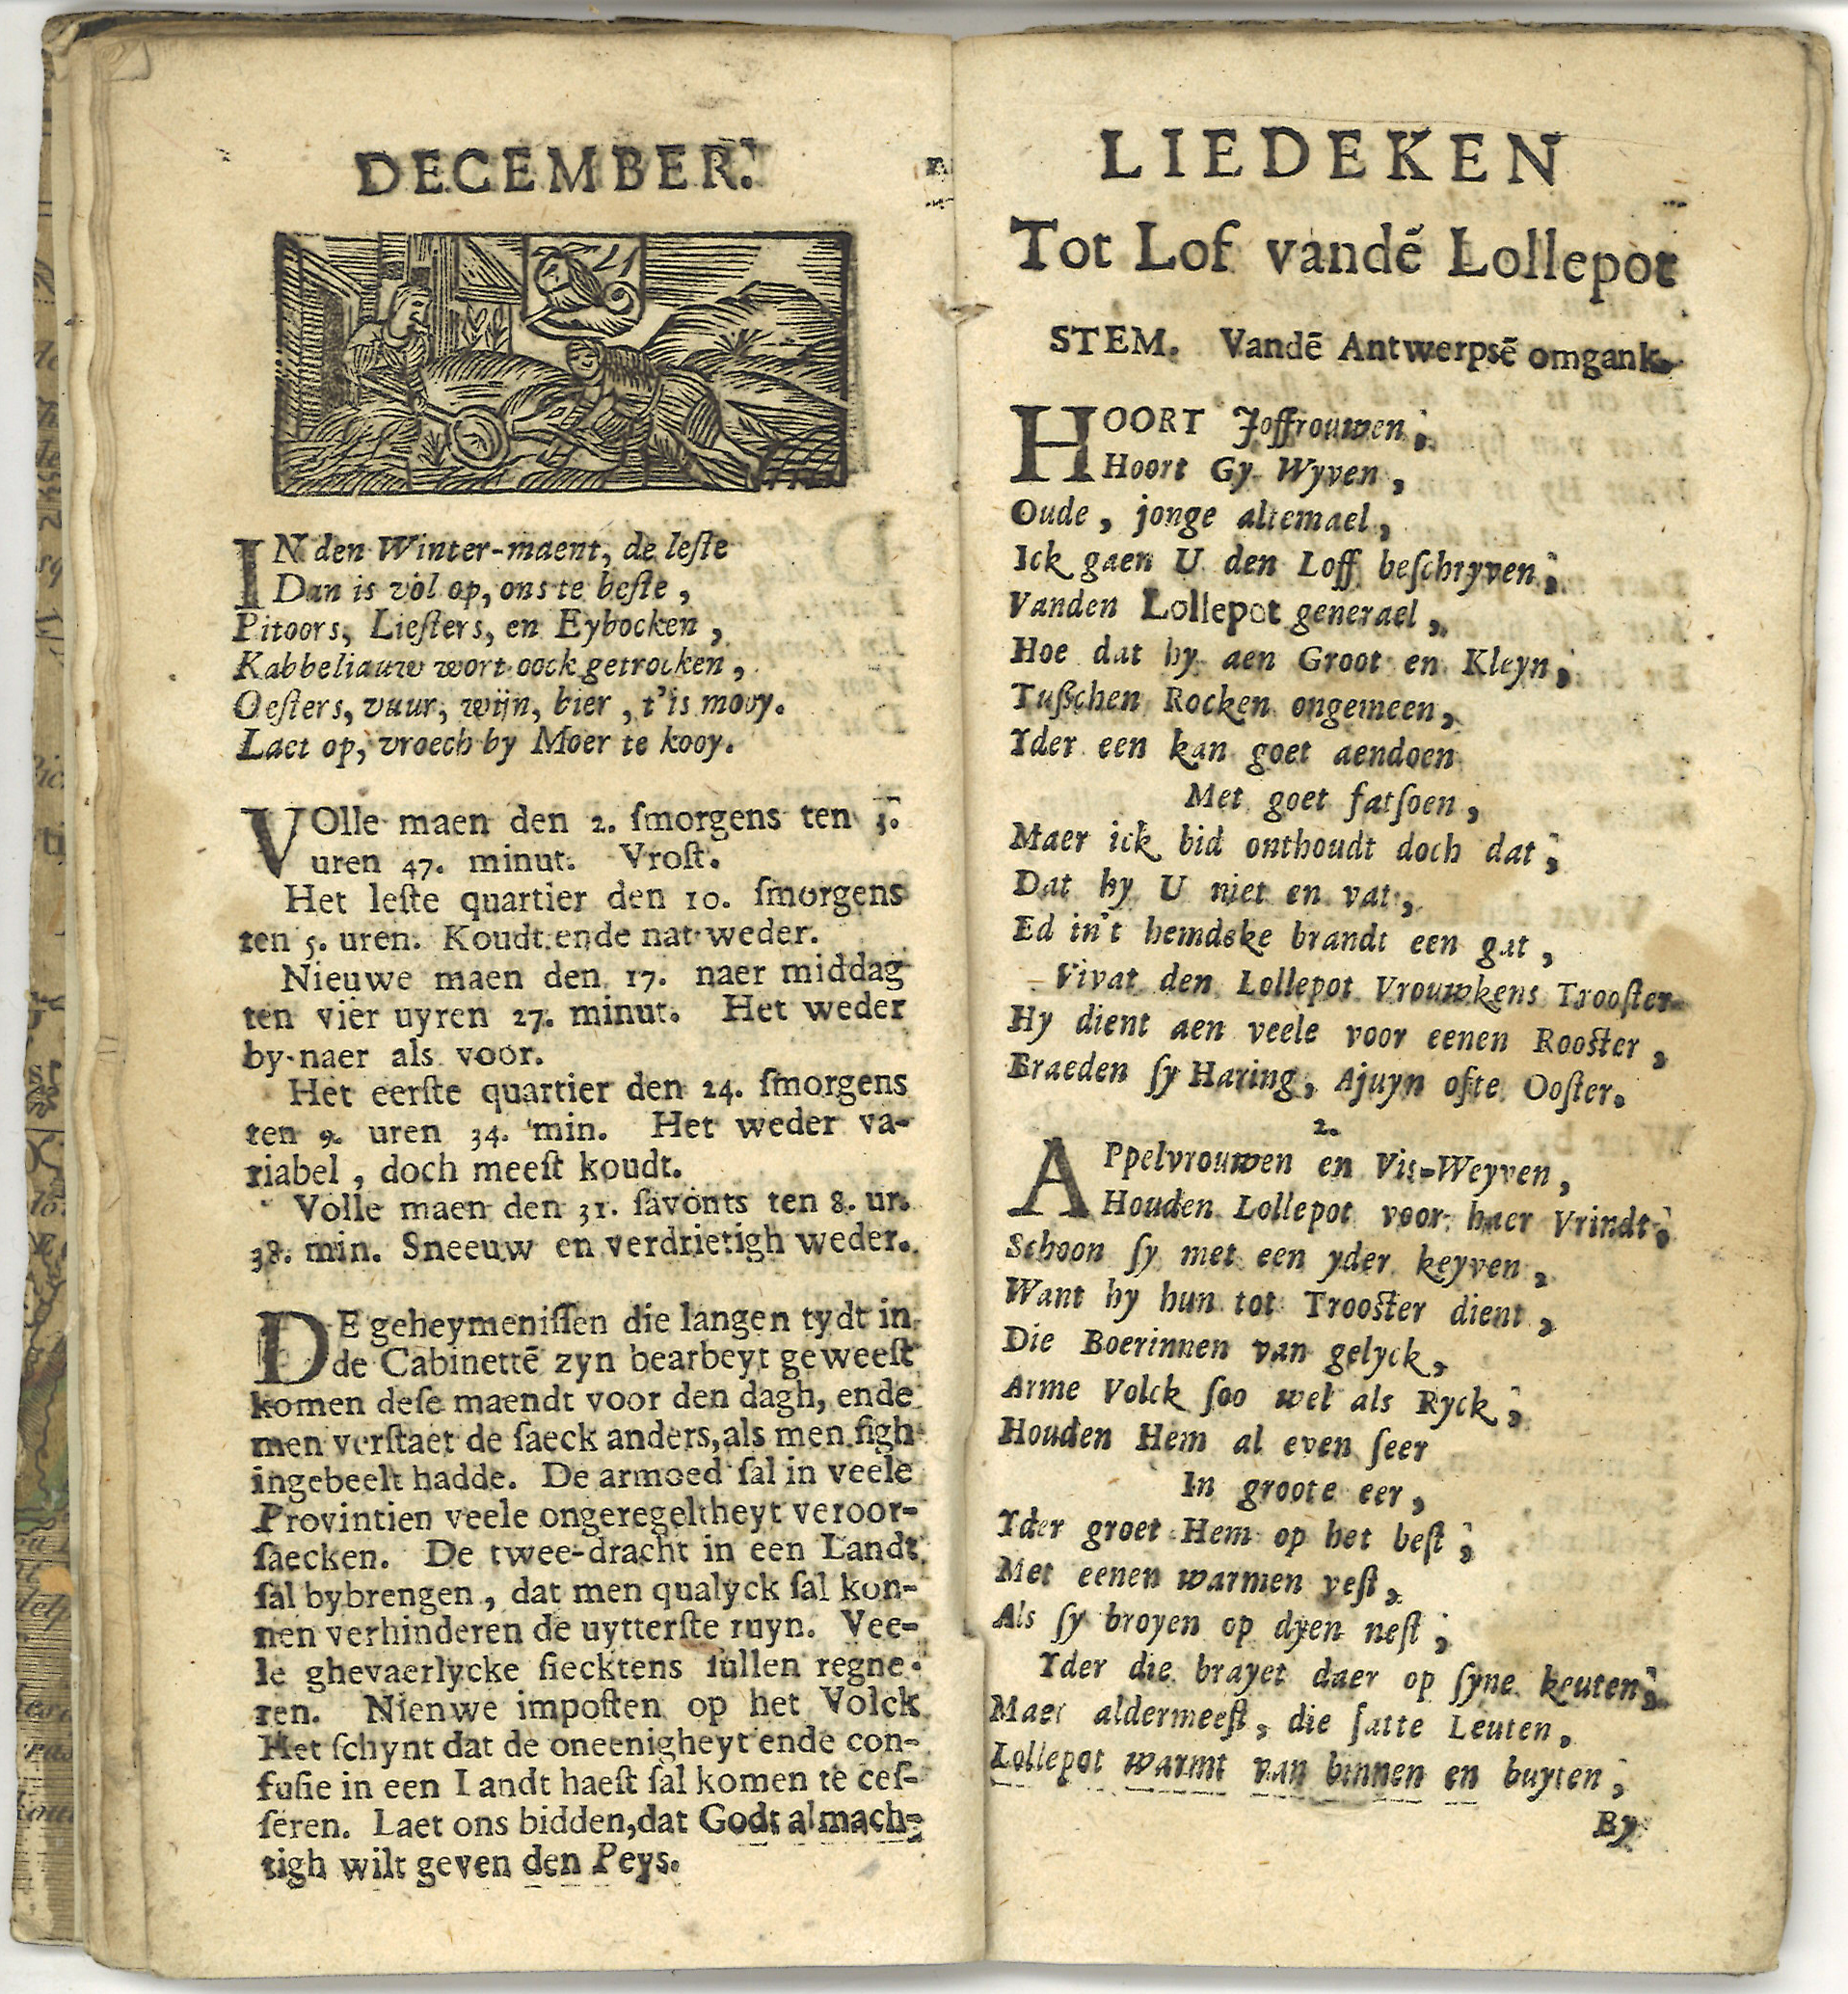 DECEMBER.
IN den Winter-maent, de leſte
Dan is vol op, ons te beſte,
Pitoors, Lieſters, en Eybocken,
Kabbeliauw wort oock getrocken,
Oeſters, vuur, wijn, bier, t'is mooy.
Laet op, vroech by Moer te kooy.
VOlle maen den 2. ſmorgens ten 5.
uren 47. minut. Vroſt.
Het leſte quartier den 10. ſmorgens
ten 5. uren. Koudt ende nat weder.
Nieuwe maen den 17. naer middag
ten vier uyren 27. minut. Het weder
by-naer als voor.
Het eerſte quartier den 24. ſmorgens
ten 9. uren 34. min. Het weder va-
riabel, doch meeſt koudt.
Volle maen den 31. ſavonts ten 8. ur.
38. min. Sneeuw en verdrietigh weder.
DE geheymeniſſen die langen tydt in
de Cabinettē zyn bearbeyt geweeſt
komen deſe maendt voor den dagh, ende
men verſtaet de ſaeck anders, als men ſigh
ingebeelt hadde. De armoed ſal in veele
Provintien veele ongeregeltheyt veroor-
ſaecken. De twee-dracht in een Landt
ſal bybrengen, dat men qualyck ſal kon-
nen verhinderen de uytterſte ruyn. Vee-
le ghevaerlycke ſiecktens ſullen regne-
ren. Nienwe impoſten op het Volck
Het ſchynt dat de oneenigheyt ende con-
fuſie in een Landt haeſt ſal komen te ceſ-
ſeren. Laet ons bidden, dat Godt almach-
tigh wilt geven den Peys.
LIEDEKEN
Tot Lof vandē Lollepot
STEM. Vandē Antwerpsē omgank.
HOORT Joffrouwen,
Hoort Gy Wyven,
Oude, jonge altemael,
Ick gaen U den Loff beſchryven,
Vanden Lollepot generael,
Hoe dat hy aen Groot en Kleyn,
Tußchen Rocken ongemeen,
Yder een kan goet aendoen
Met goet fatſoen,
Maer ick bid onthoudt doch dat,
Dat hy U niet en vat,
Ed in't hemdeke brandt een gat,
Vivat den Lollepot Vrouwkens Trooſter
Hy dient aen veele voor eenen Rooſter,
Braeden ſy Haring, Ajuyn ofte Ooſter.
2.
APpelvrouwen en Vis-Weyven,
Houden Lollepot voor haer Vrindt,
Schoon ſy met een yder keyven,
Want hy hun tot Trooſter dient,
Die Boerinnen van gelyck,
Arme Volck ſoo wel als Ryck,
Houden Hem al even ſeer
In groote eer,
Yder groet Hem op het beſt,
Met eenen warmen veſt,
Als ſy broyen op dyen neſt,
Yder die brayet daer op ſyne keuten,
Maer aldermeeſt, die fatte Leuten,
Lollepot warmt van binnen en buyten,
By